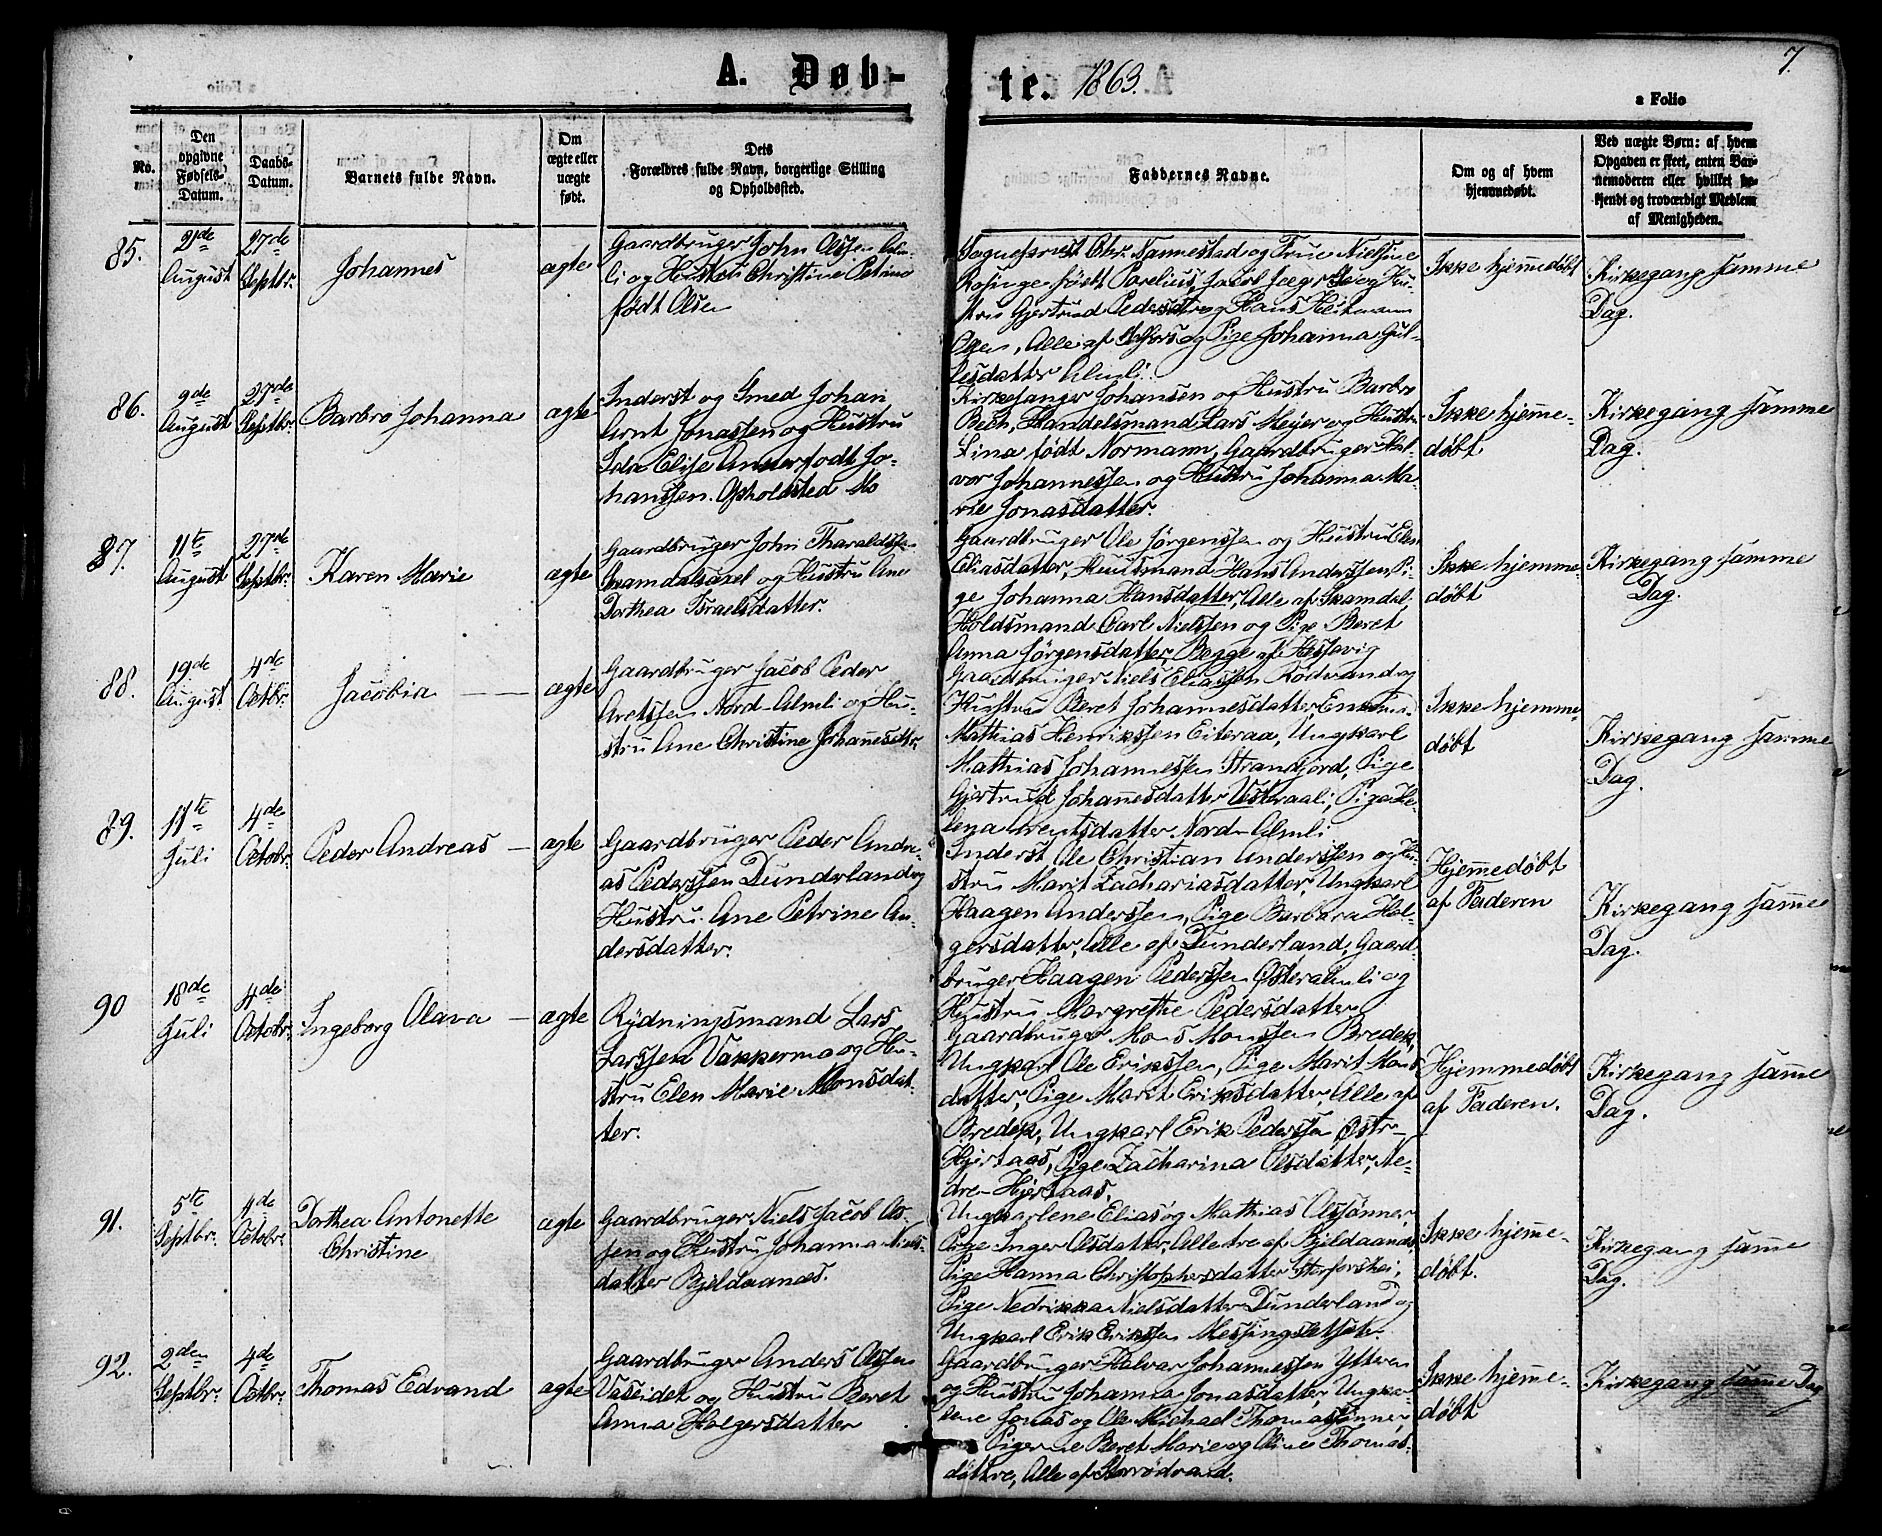 7.
A. Døb-te. 1863.
a Folio
No.
Den opgivne Fødsels-Datum.
Daabs-Datum.
Barnets fulde Navn.
Om ægte eller uægte født.
Dets Forældres fulde Navn, borgerlige Stilling og Opholdssted.
Faddernes Navne.
Om og af hvem hjemmedøbt.
Ved uægte Børn: af hvem Opgaven er skeet, enten Barnemoderen eller hvilket bekjendt og troværdigt Medlem af Menigheden.
85.
2de August
27de Septbr.
Johannes
ægte
Gaardbruger John Olsen Alm-
li og Hustru Christine Petrine
født Olsen
Sognepræst Chr. Tannestad og Frue Nielsine
født Parelius, Jacob
stru Gjertrud Pedersdtr og Hans Heitmann
Alle af og Pige Johanna Gul-
lesdatter Almli.
Ikke hjemedøbt
Kirkegang samme
Dag.
86.
9de August
27de Septbr.
Barbro Johanna
ægte
Inderst og Smed Johan
Arnt Jonassen og Hustru
Ida Elise Anna født Jo-
hansen. Opholdsted Mo
Kirkesanger Johansen og Hustru Barbro
Bech, Handelsmand Lars Meyer og Hustru
Lina født Normann, Gaardbruger Hal-
vor Johannessen og Hustru Johanna Ma-
rie Jonasdatter.
Ikke hjeme-
døbt
Kirkegang samme
Dag.
87.
11te August
27de Septbr.
Karen Marie
ægte
Gaardbruger John Tharaldsen
Skamdalsaxel og Hustru Ane
Dorthea Israelsdatter.
Gaardbruger Ole Jørgensen og Hustru Elen
Eliasdatter, Huusmand Hans Anderssen, Pi-
ge Johanna Hansdatter, Alle af Skamdal,
Holdsmand Carl Nielssen og Pige Beret
Anna Jørgensdatter, Begge af
Ikke hjemme-
døbt
Kirkegang samme
Dag.
88.
19de August
4de Octbr.
Jacobia
ægte
Gaardbruger Jacob Peder
Arntsen Nord-Almli og Hu-
stru Ane Christine Johannesdtr.
Gaardbruger Niels Eliassen Rødvand og
Hustru Beret Johannesdatter, Enkemand
Mathias Henrikssen Eiteraa, Ungkarl
Mathias Johannessen Strandjord, Pige
Gjertrud Johannesdatter Vesteraali, Pige He-
lena Arentsdatter Nord-Almli
Ikke hjemme-
døbt
Kirkegang samme
Dag.
89.
17te Juli
4de Octobr.
Peder Andreas
ægte
Gaardbruger Peder Andre-
as Pederssen Dunderland og
Hustru Ane Petrine An-
dersdatter.
Inderst Ole Christian Anderssen og Hu-
stru Marit Zachariasdatter, Ungkarl
Haagen Anderssen, Pige Barbara Hol-
gersdatter, Alle af Dunderland, Gaard-
bruger Haagen Pederssen Østeralmli og
Hustru Margrethe Pedersdatter
Hjemedøbt
af Faderen
Kirkegang same
Dag.
90
18de Juli
4de Octobr.
Ingeborg Olava
ægte
Rydningsmand Lars
Larssen Vakkermo og Hu-
stru Elen Marie Monsdat-
ter.
Gaardbruger Mons Monssen Bredek,
Ungkarl Ole Erikssen, Pige Marit Mons
datter, Pige Marit Eriksdatter, Alle af
Bredek, Ungkarl Erik Pederssen Østre-
Hjertaas, Pige Zacharina Olsdatter, Ne-
dre-Hjertaas.
Hjemmedøbt
af Faderen.
Kirkegang same
Dag.
91.
5te Septbr.
4de Octobr.
Dorthea Antonette
Christine
ægte
Gaardbruger Niels Jacob Ol-
sen og Hustru Johanna Niels-
datter Bjeldaanæs.
Ungkarlene Elias og Mathias Olssønner,
Pige Inger Olsdatter, Alle tre af Bjeldaanæs,
Pige Hanna Christophersdatter Storforshei,
Pige Nedrikka Nielsdatter Dunderland og
Ungkarl Erik Erikssen Messingsletseter.
Ikke hjeme-
døbt.
Kirkegang same
Dag.
92.
2den Septbr.
4de Octbr.
Thomas Edvand
ægte
Gaardbruger Anders Olssen
Vaseidet og Hustru Beret
Anna Holgersdatter
Gaardbruger Halvor Johannessen Ytteren
og Hustru Johanna Jonasdatter, Ungkar-
lene Jonas og Ole Michael Thomassønner,
Pigerne Beret Marie og Oline Thomas-
døttre, Alle af Storrødvand.
Ikke hjeme-
døbt
Kirkegang same Dag